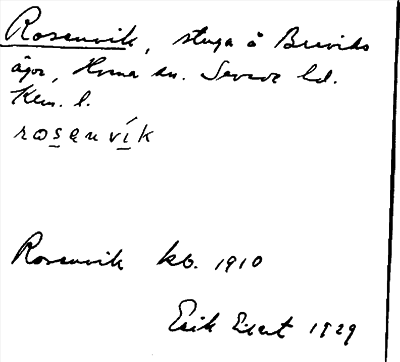 Rosenvik, stuga å Breviks
ägor, Horna sn. Sevede hd.
Klm. l.
rosenvik
Rosenvik kb. 1910
Erik Ekert 1929